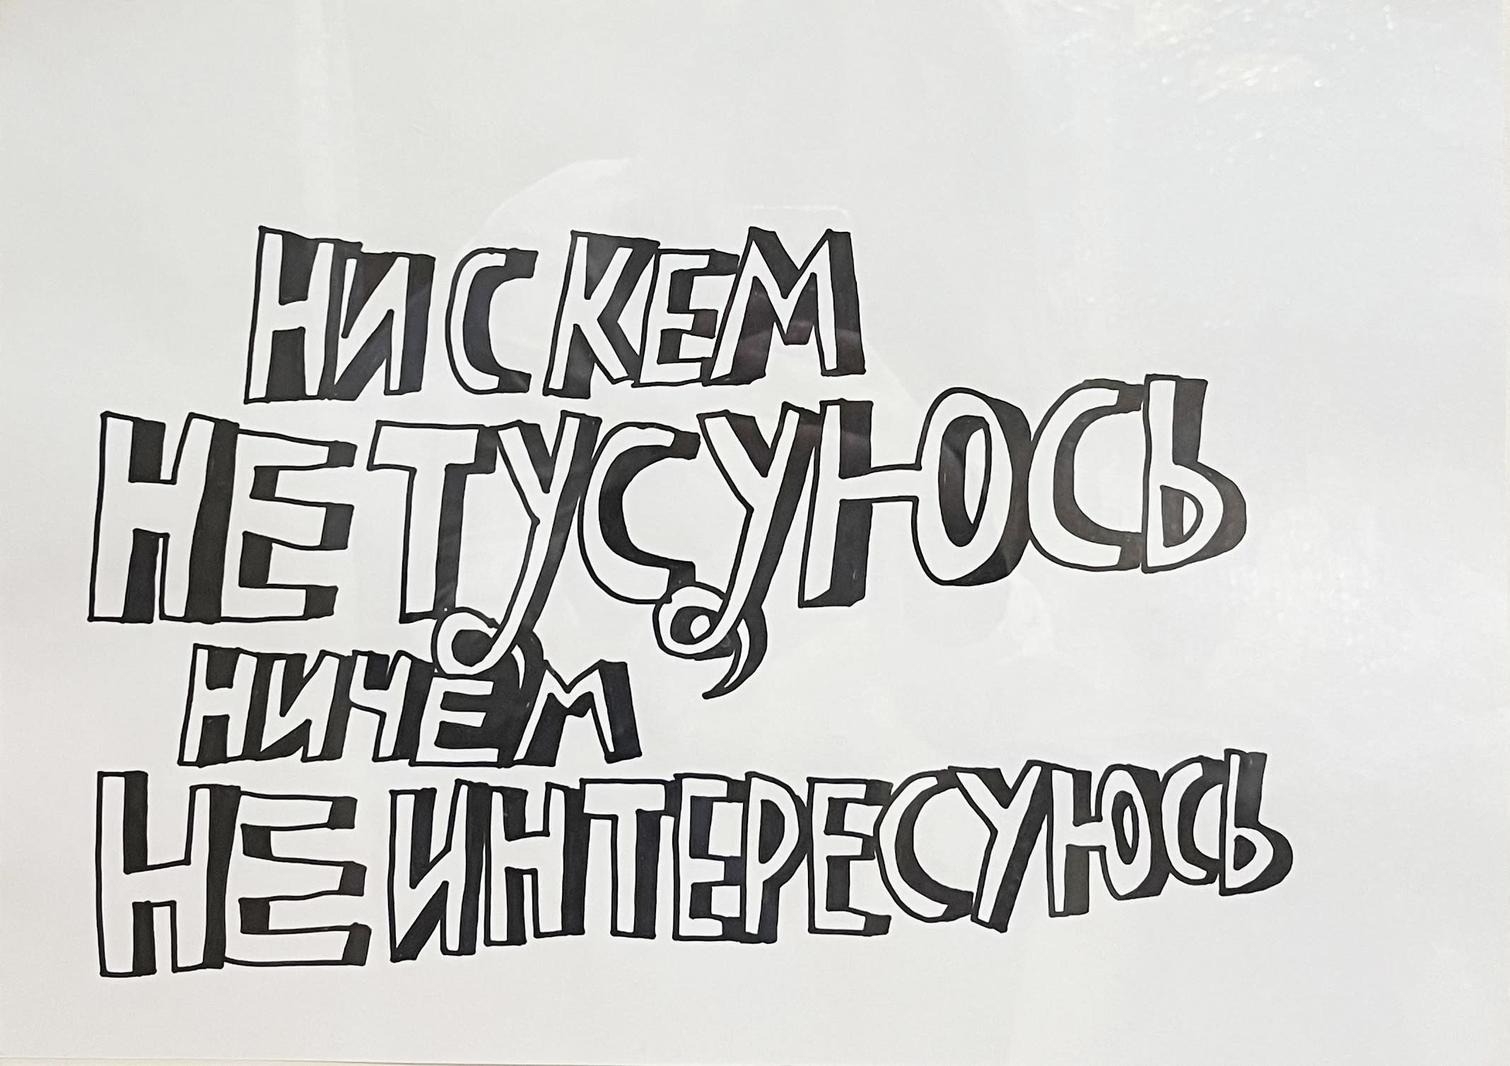 НИ С КЕМ
НЕ ТУСУЮСЬ
НИЧЕМ
НЕ ИНТЕРЕСУЮСЬ